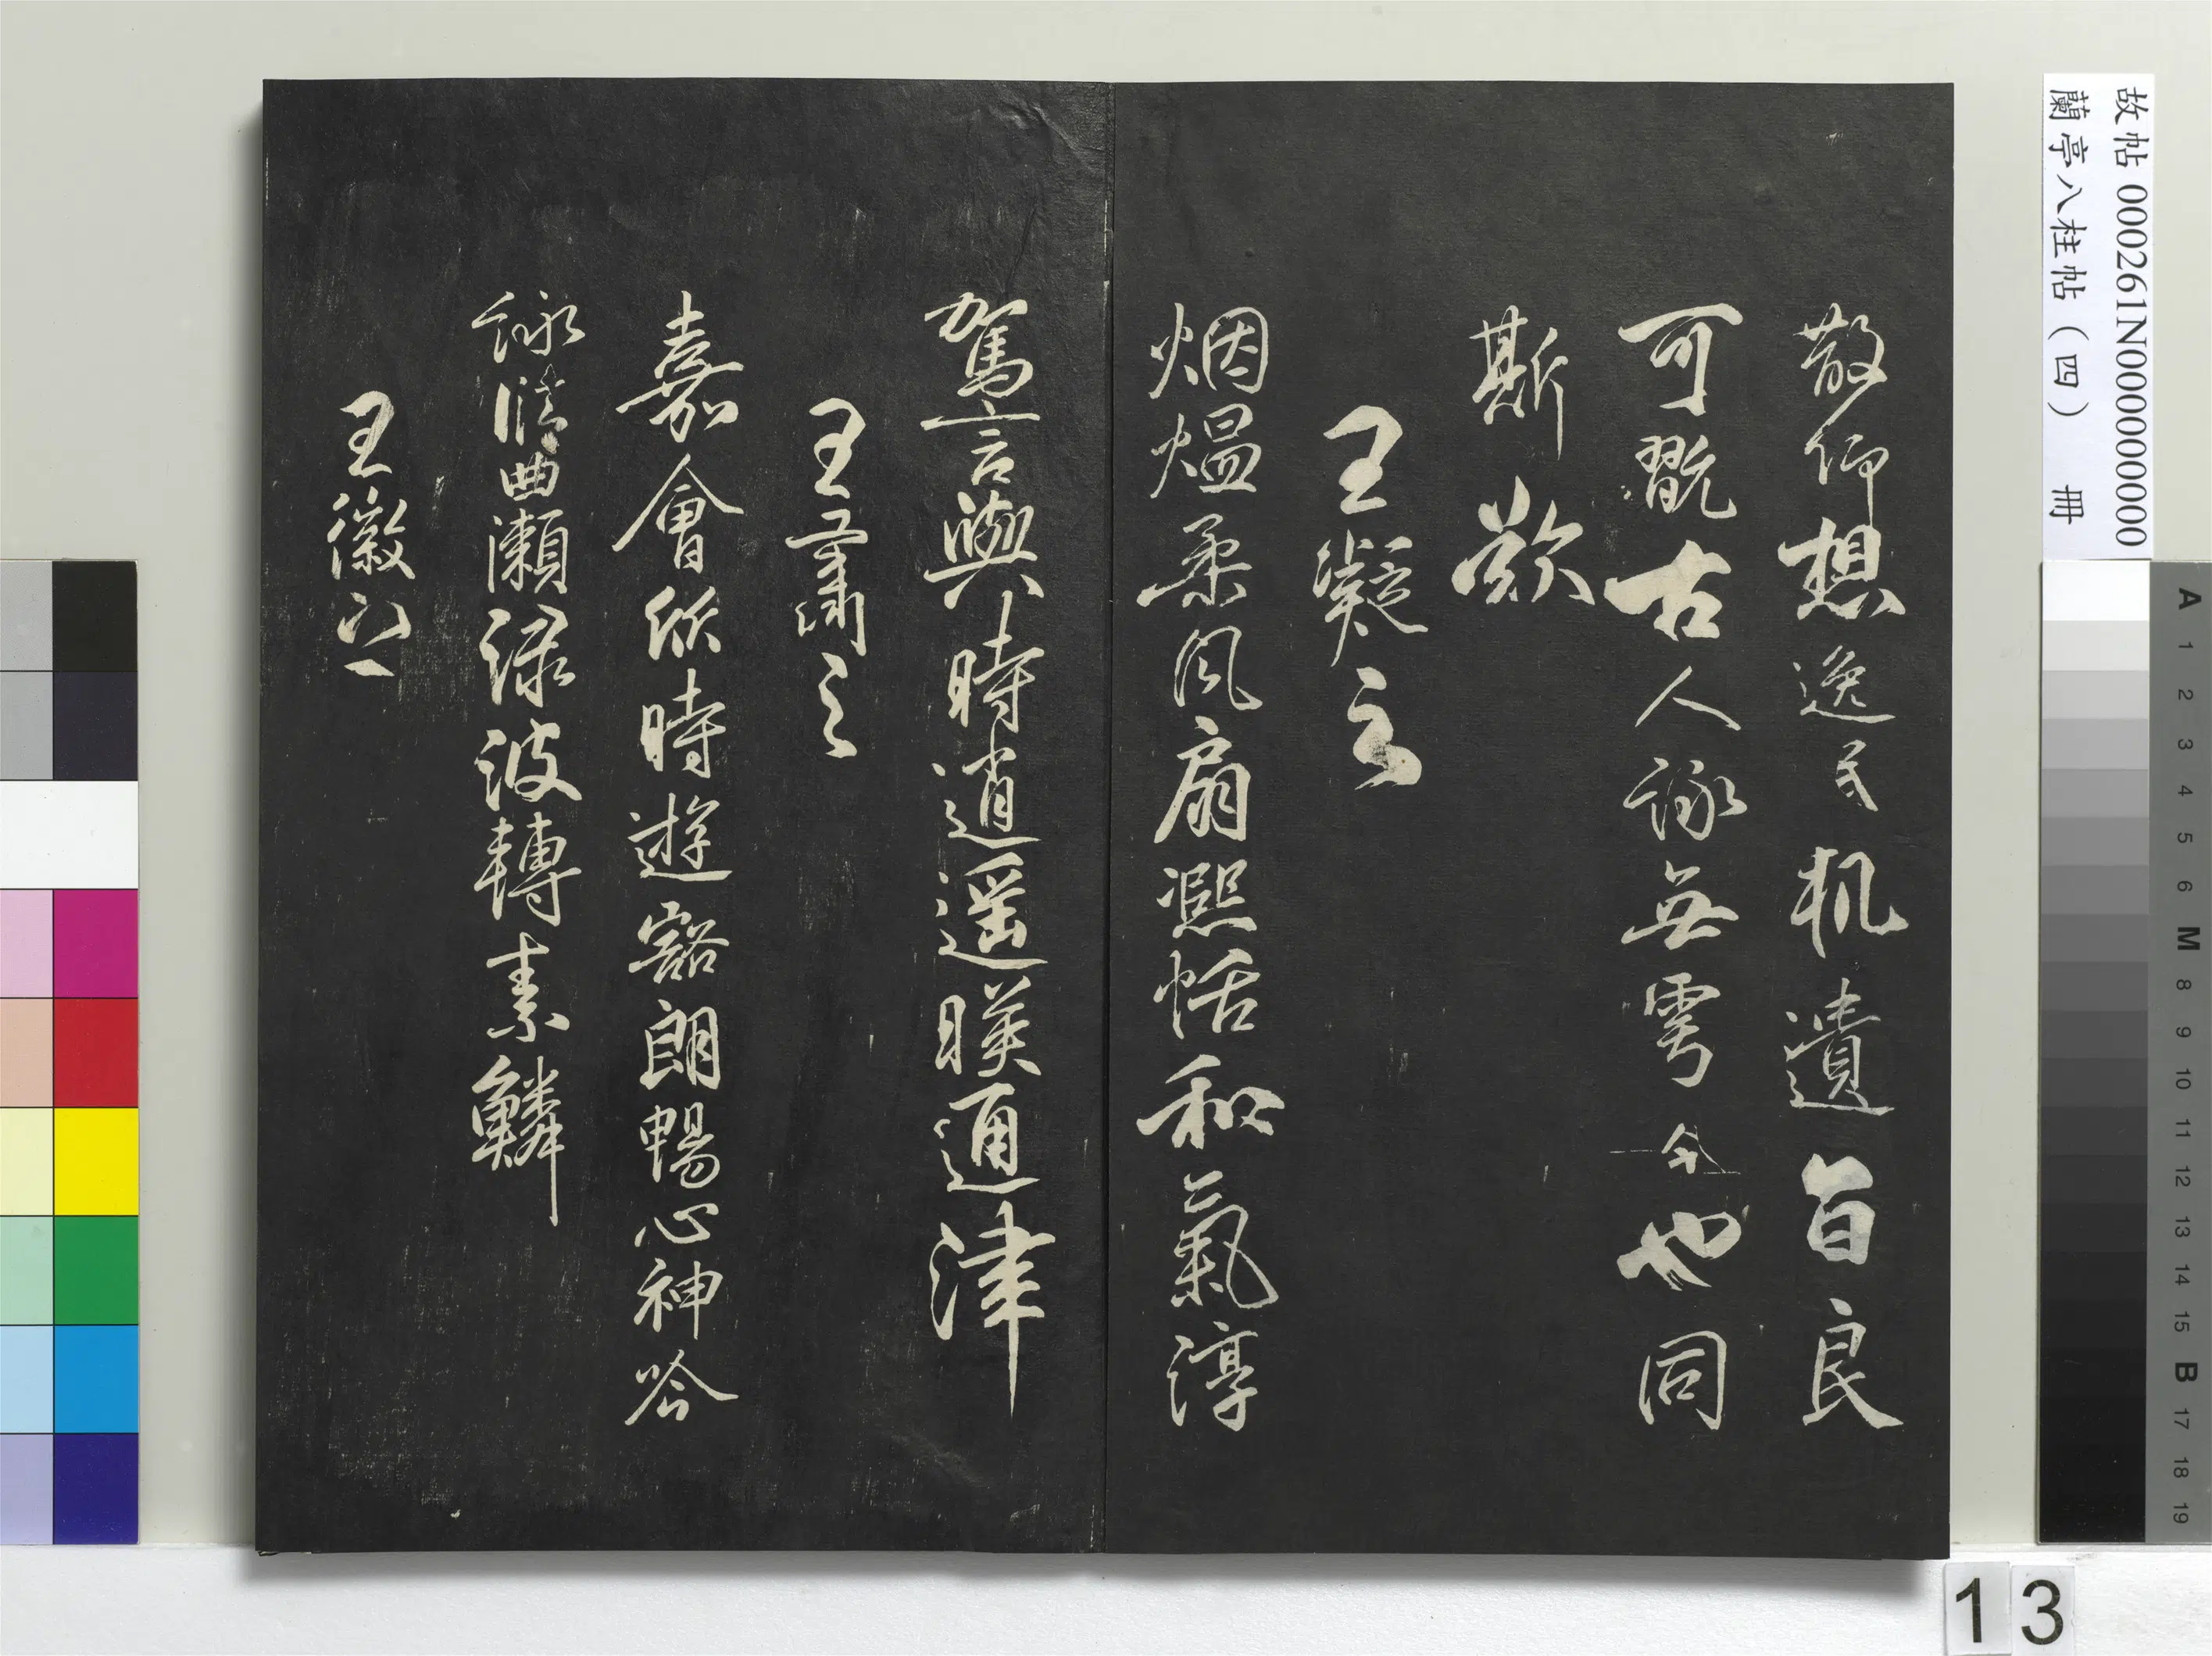 故帖 000261N000000000
蘭亭八柱帖（四） 冊
散仰想逸民軌遺旨良
可翫古人詠無雩今也同
斯歎
王凝之
烟熅柔風扇凞恬和氣淳
駕言興時逍遥暎通津
王肅之
嘉會欣時遊豁朗暢心神吟
詠臨曲瀨渌波轉素鱗
王徽之
A 1 2 3 4 5 6 M 8 9 10 11 12 13 14 15 B 17 18 19
13